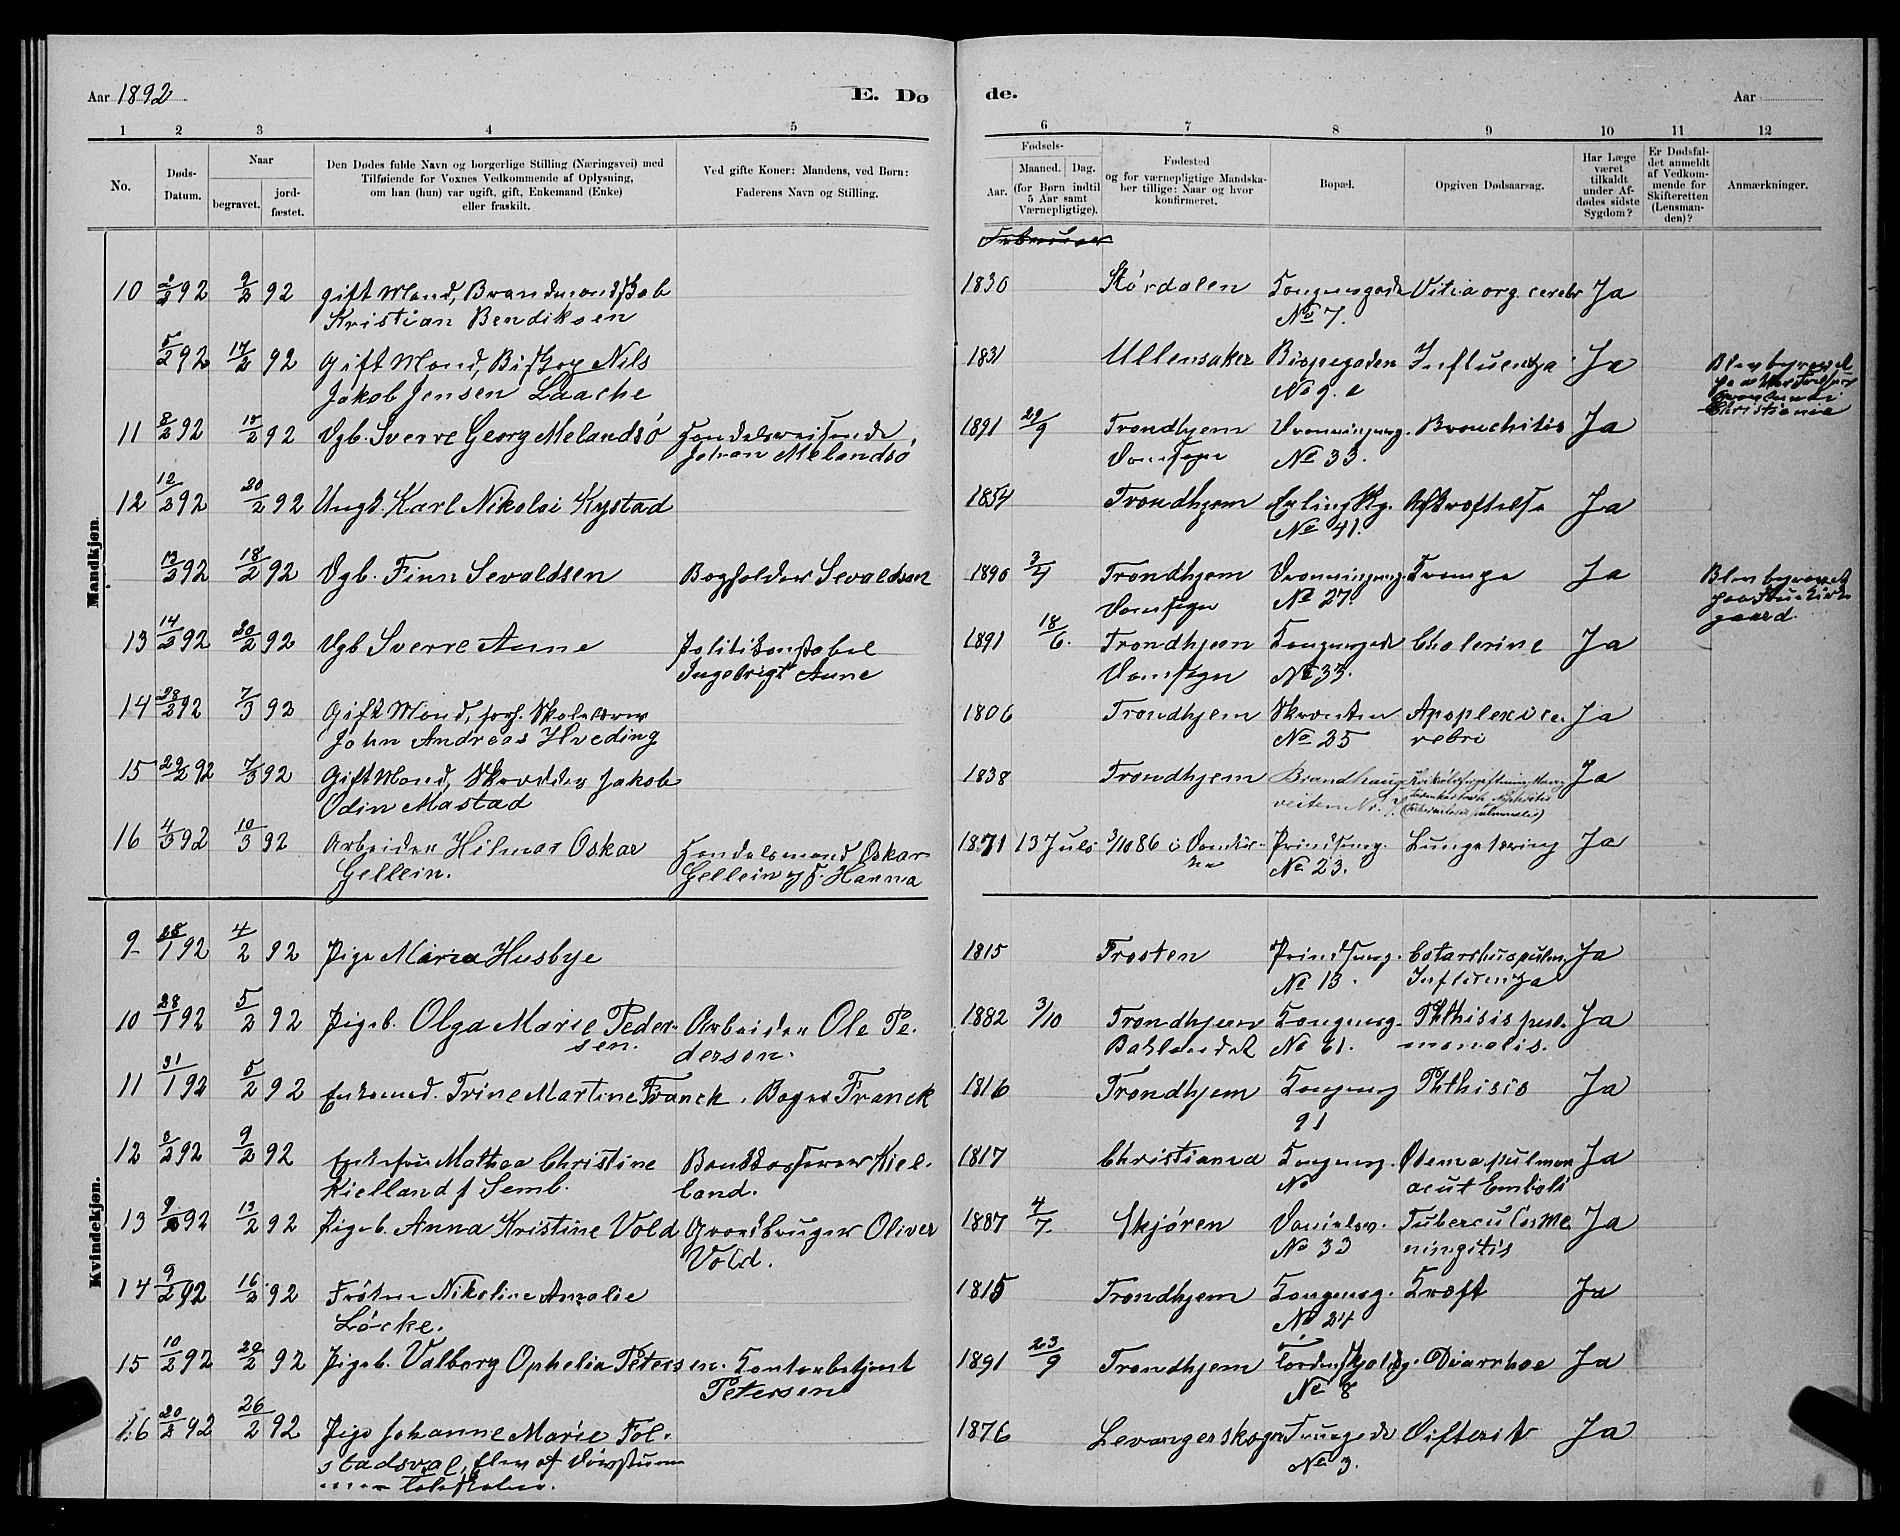 Aar 1892
E. Dø
1 2 3 4 5
No.
Døds-
Datum.
Naar
begravet.
jord-
fæstet.
Den Dødes fulde Navn og borgerlige Stilling (Næringsvei) med
Tilføiende for Voxnes Vedkommende af Oplysning,
om han (hun) var ugift, gift, Enkemand (Enke)
eller fraskilt.
Ved gifte Koner: Mandens, ved Børn:
Faderens Navn og Stilling.
Mandkjøn.
10 2/2 92 9/2 92 gift Mand, Brandmandskab
Kristian Bendiksen
5/2 92 17/2 92 Gift Mand, Biskop Nils
Jakob Jensen Laache
11 8/2 92 15/2 92 Dgb. Sverre Georg Melandsø Handelsreisende
Johan Melandsø
12 12/2 92 20/2 92 Ungk. Karl Nikolai Kystad
13/2 92 18/2 92 Dgb. Finn Sevaldsen Bogholder Sevaldsen
13 14/2 92 20/2 92 Dgb Sverre Aune Politikonstabel
Ingebrigt Aune
14 28/2 92 7/3 92 Gift Mand, forh. Skolelærer
John Andreas Hveding
15 29/2 92 7/3 92 Gift Mand, Skrædder Jakob
Odin Mastad
16 4/3 92 10/3 92 Arbeider Hilmar Oskar Handelsmand Oskar
Gellein. Gellein og H. Hanna
Kvindekjøn.
9 28/1 92 4/2 92 Pige Maria Husbye
10 28/1 92 5/2 92 Pigeb. Olga Marie Peder- Arbeider Ole Pe-
sen. dersen.
11 31/1 92 5/2 92 Trine Martine Franck. Bager Franck
12 2/2 92 9/2 92 Enkefru Mathea Christine Bankkasserer Kiel-
Kielland f Semb. land.
13 9/2 92 13/2 92 Pigeb. Anna Kristine Vold Gaardbruger Oliver
Vold.
14 9/2 92 16/2 92 Frøken Nikoline Amalie
Løcke.
15 10/2 92 20/2 92 Pigeb. Valborg Ophelia Petersen. Kontorbetjent
Petersen
16 20/2 92 26/2 92 Pige Johanne Marie Fol-
stadsval, Elev af Døvstum
de.
Aar
6 7 8 9 10 11 12
Fødsels-
Aar.
Maaned. Dag.
(for Børn indtil
5 Aar samt
Værnepligtige).
Fødested
og for værnepligtige Mandska-
ber tillige: Naar og hvor
konfirmeret.
Bopæl.
Opgiven Dødsaarsag.
Har Læge
været
tilkaldt
under Af-
dødes sidste
Sygdom?
Er Dødsfal-
det anmeldt
af Vedkom-
mende for
Skifteretten
(Lensman-
den)?
Anmærkninger.
Februar
1830 Størdalen Kongensgade Vitia org. cerebr Ja
No 7.
1831 Ullensaker Bispegaden Influenza Ja Blev begravet
No 9. c
Christiania
1891 29/9 Trondhjem Dronningensg. Bronchitis Ja
Domsogn No 33.
1854 Trondhjem Erling Skg. Afkræftelse Ja
No 41.
1890 3/4 Trondhjem Dronningensg. Krampe Ja Blev begravet
Domsogn No 27.
gaard.
1891 18/6. Trondhjem Kongensgade Cholerine Ja
Domsogn No 33.
1806 Trondhjem Skrænten Apoplexi ce- Ja
No 25 rebri
1838 Trondhjem Brandhaug Ja
veiten Nr. 7.
1871 13 Juli 3/10 86 i Domkir- Prindsensg. Lungetæring Ja
ke No 23.
1815 Frosten Prindsensg. Catarrhus pulm. Ja
No 13. Influenza
1882 3/10 Trondhjem Kongensg. Phthisis pul- Ja
Baklandet No 61. monalis.
1816 Trondhjem Kongensg Phthisis Ja
91
1817 Christiania Kongensg. Ødema pulmon Ja
No acut Emboli
1887 4/7. Skjøren Danielsv. Tuberculos Me Ja
No 33 ningitis
1815 Trondhjem Kongensg. Kræft Ja
No 24
1891 23/9 Trondhjem Tordenskjoldsg. Diarrhoe Ja
No 8
1876 Levangerskogn Kongensgd Difterit Ja
No 3.